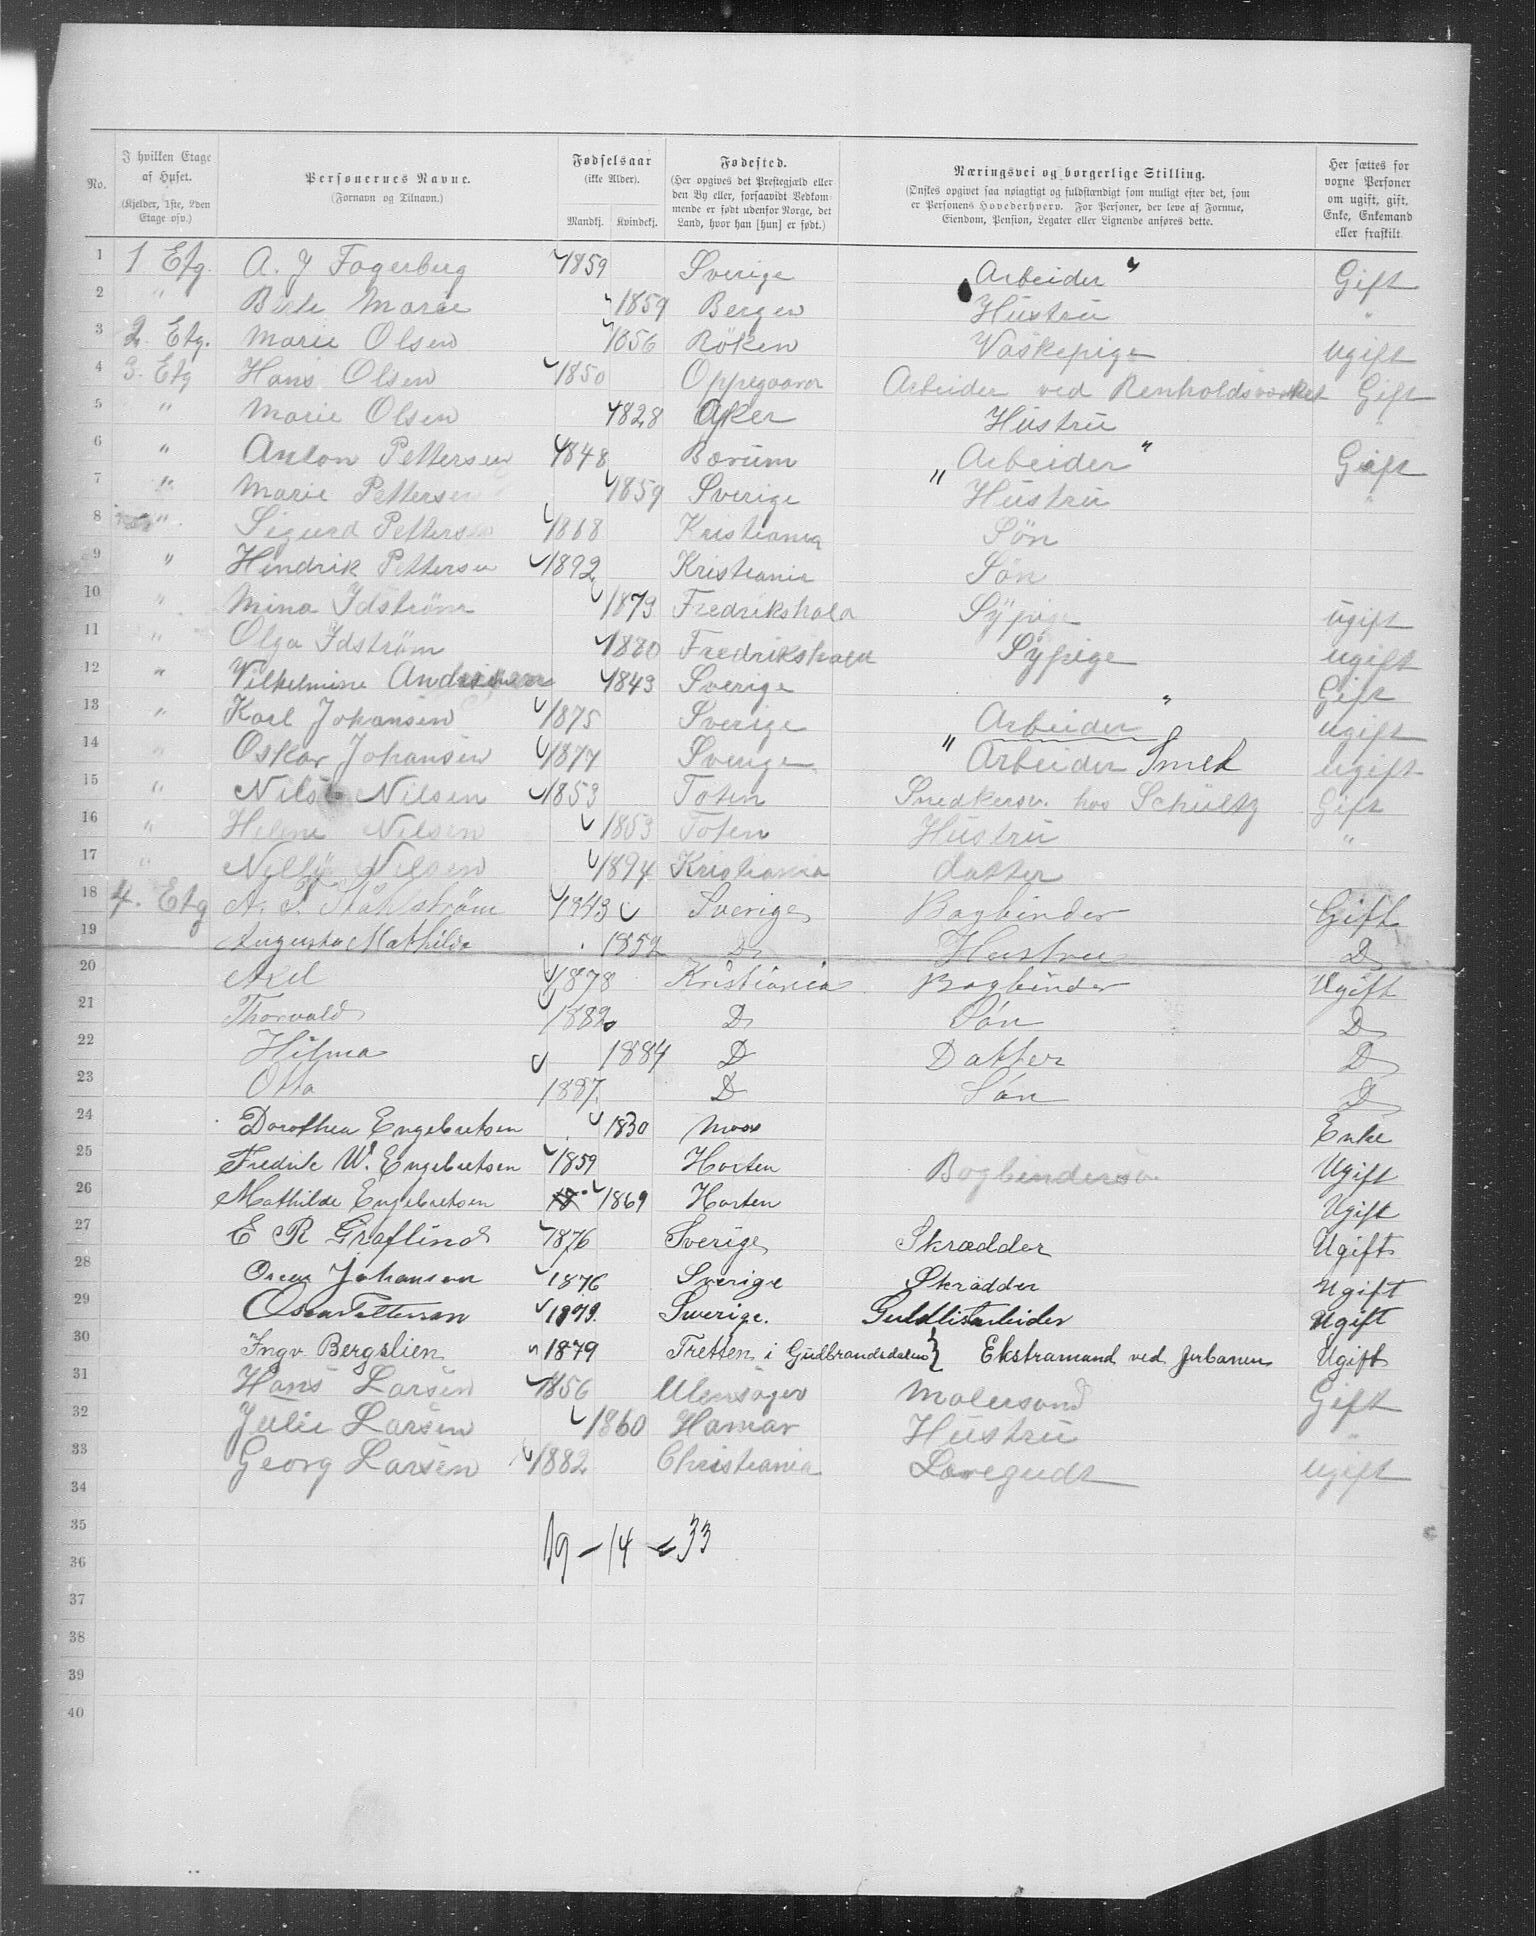 No. | I hvilken Etage af Huset. (Kjelder, 1ste, 2den Etage osv.) | Personernes Navne. (Fornavn og Tilnavn.) | Fødselsaar (ikke Alder). Mandkj. Kvindekj. | Fødested. (Her opgives det Prestegjæld eller den By eller, forsaavidt Vedkommende er født udenfor Norge, det Land, hvor han [hun] er født.) | Næringsvei og borgerlige Stilling. (Ønskes opgivet saa nøiagtigt og fuldstændigt som muligt efter det, som er Personens Hovederhverv. For Personer, der leve af Formue, Eiendom, Pension, Legater eller Lignende anføres dette. | Her sættes for voxne Personer om ugift, gift, Enke, Enkemand eller fraskilt
1 1 Etg. A. J Fagerberg 1859 Sverige Arbeider " Gift
2 " Marie 1859 Bergen Hustru "
3 2. Etg. Marie Olsen 1856 Röken Vaskepige ugift
4 3. Etg Hans Olsen 1850 Oppegaard Arbeider ved Renholdsværket Gift
5 " Marie Olsen 1828 Aker Hustru "
6 " Anton Pettersen 1848 Bærum " Arbeider " Gift
7 " Marie Pettersen 1859 Sverige Hustru "
8 " Sigurd Pettersen 1868 Kristiania Sön
9 " Hendrik Pettersen 1892 Kristiania Sön
10 " Mina Idström 1879 Fredrikshald Sÿpige ugift
11 " Olga Idström 1880 Fredrikshald Sÿpige ugift
12 " Vilhelmine 1843 Sverige " Gift
13 " Karl Johansen 1875 Sverige Arbeider ugift
14 " Oskar Johansen 1877 Sverige " Arbeider Smed ugift
15 " Nils Nilsen 1853 Toten Snedkersv. hos Schultz Gift
16 " Helene Nilsen 1853 Toten Hustru "
17 " Nilsen 1894 Kristiania datter
18 4. Etg A. F. Ståhlström 1843 Sverige Bogbinder Gift
19 Augusta Mathilda 1852 D Hustru D
20 Axel 1878 Kristiania Bogbinder Ugift
21 Thorvald 1882 D Sön D
22 Hilma 1884 D Datter D
23 Otto 1887. D Sön D
24 Dorothea Engebretsen 1830 Moss Enke
25 Fredrik W. Engebretsen 1859 Horten Bogbindersv. Ugift
26 Mathilde Engebretsen 1869 Horten Ugift
27 E R Graflind 1876 Sverige Skrædder Ugift
28 Oscar Johanson 1876 Sverige Skrädder Ugift
29 Oscar Petterson 1879. Swerige. Guldlistarbeider Ugift
30 Ingv. Bergslien 1879 Tretten i Gudbrandsdalen } Ekstramand ved Jerbanen Ugift
31 Hans Larsen 1856 Ulensager Malersvend Gift
32 Julie Larsen 1860 Hamar Hustru "
33 Georg Larsen 1882 Christiania Læregudt ugift
34
35
36 19 – 14 = 33
37
38
39
40